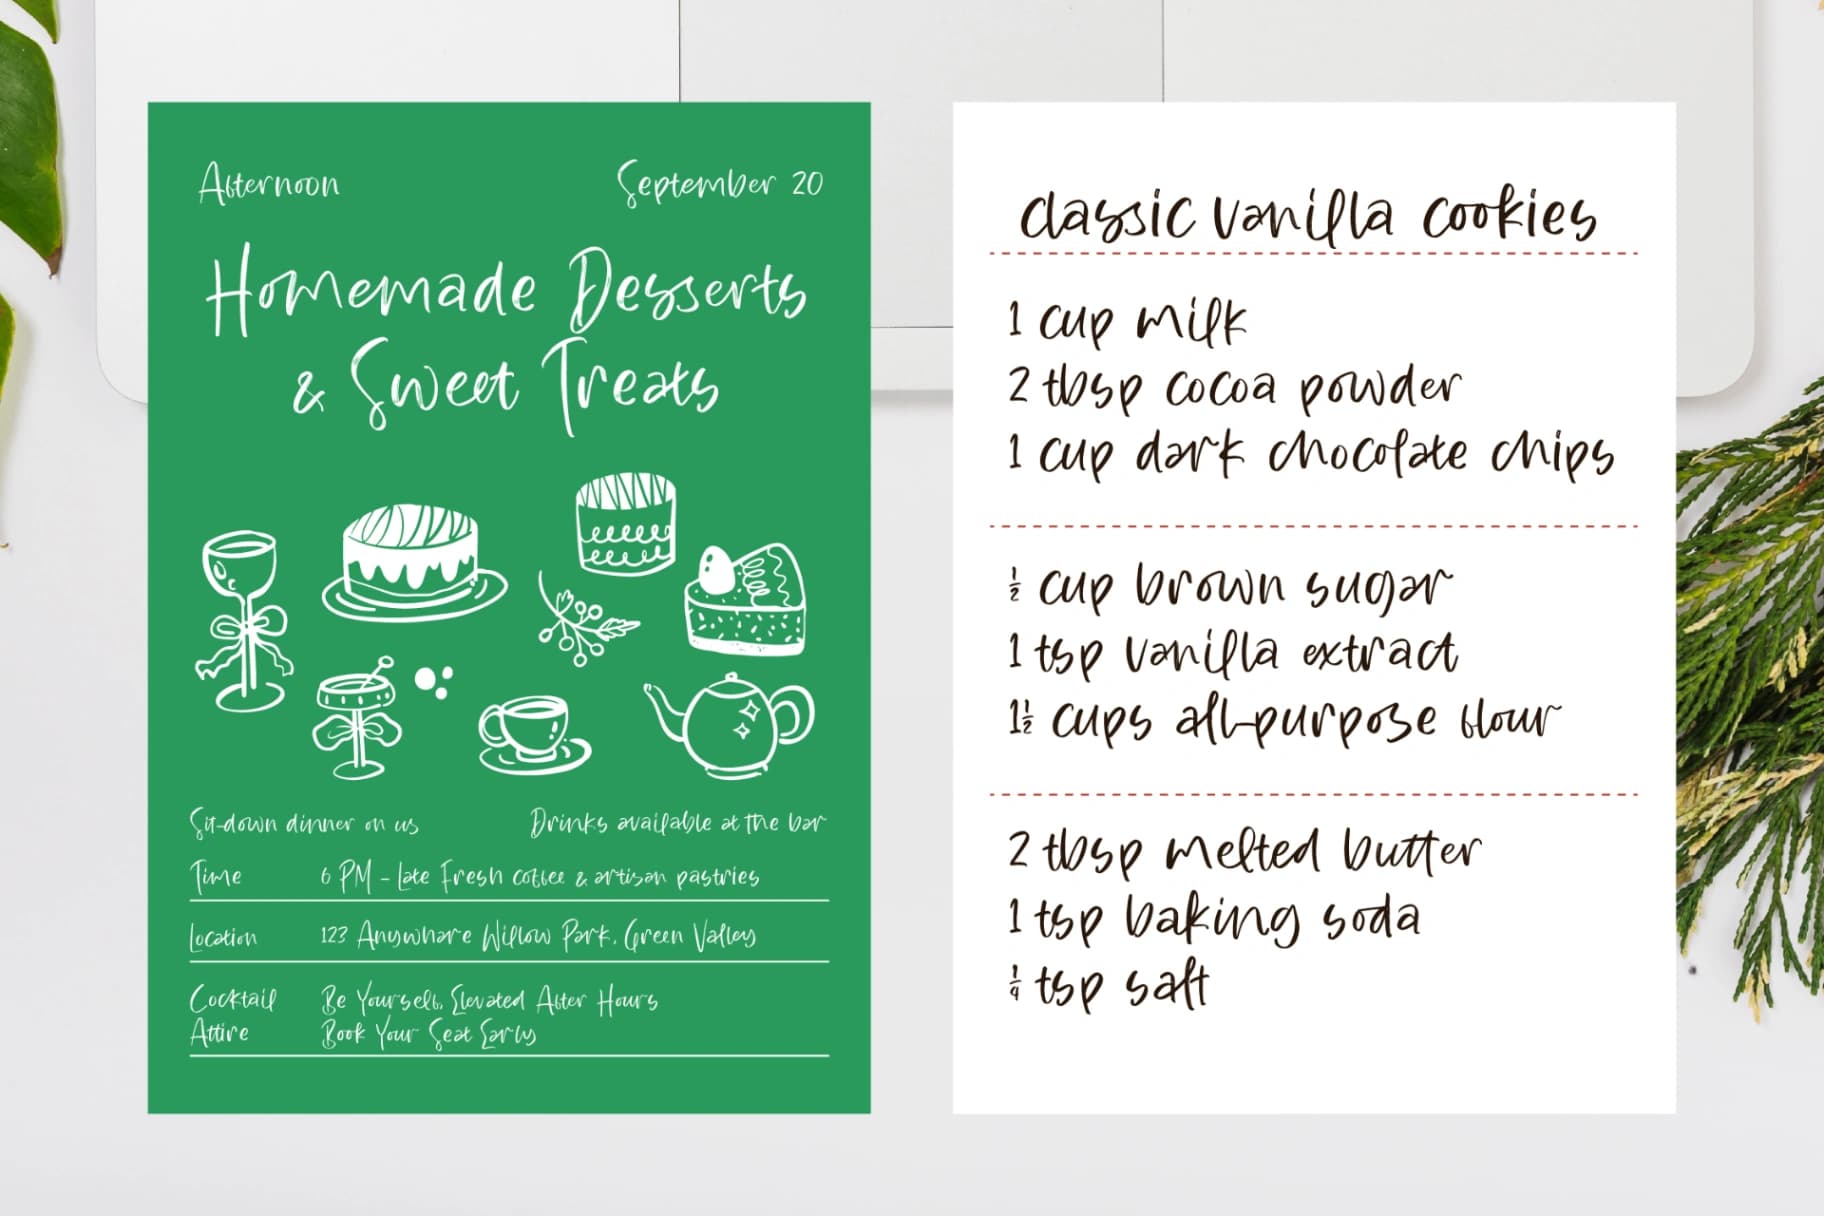 Afternoon
September 20
Homemade Desserts
& Sweet Treats
Sit-down dinner on us
Drinks available at the bar
Time
6 PM - Late Fresh coffee & artisan pastries
Location
123 Anywhare Willow Park, Green Valley
Cocktail
Attire
Be Yourself, Elevated After Hours
Book Your Seat Early
classic vanilla cookies
1 cup milk
2 tbsp cocoa powder
1 cup dark chocolate chips
½ cup brown sugar
1 tsp vanilla extract
1½ cups all-purpose flour
2 tbsp melted butter
1 tsp baking soda
¼ tsp salt